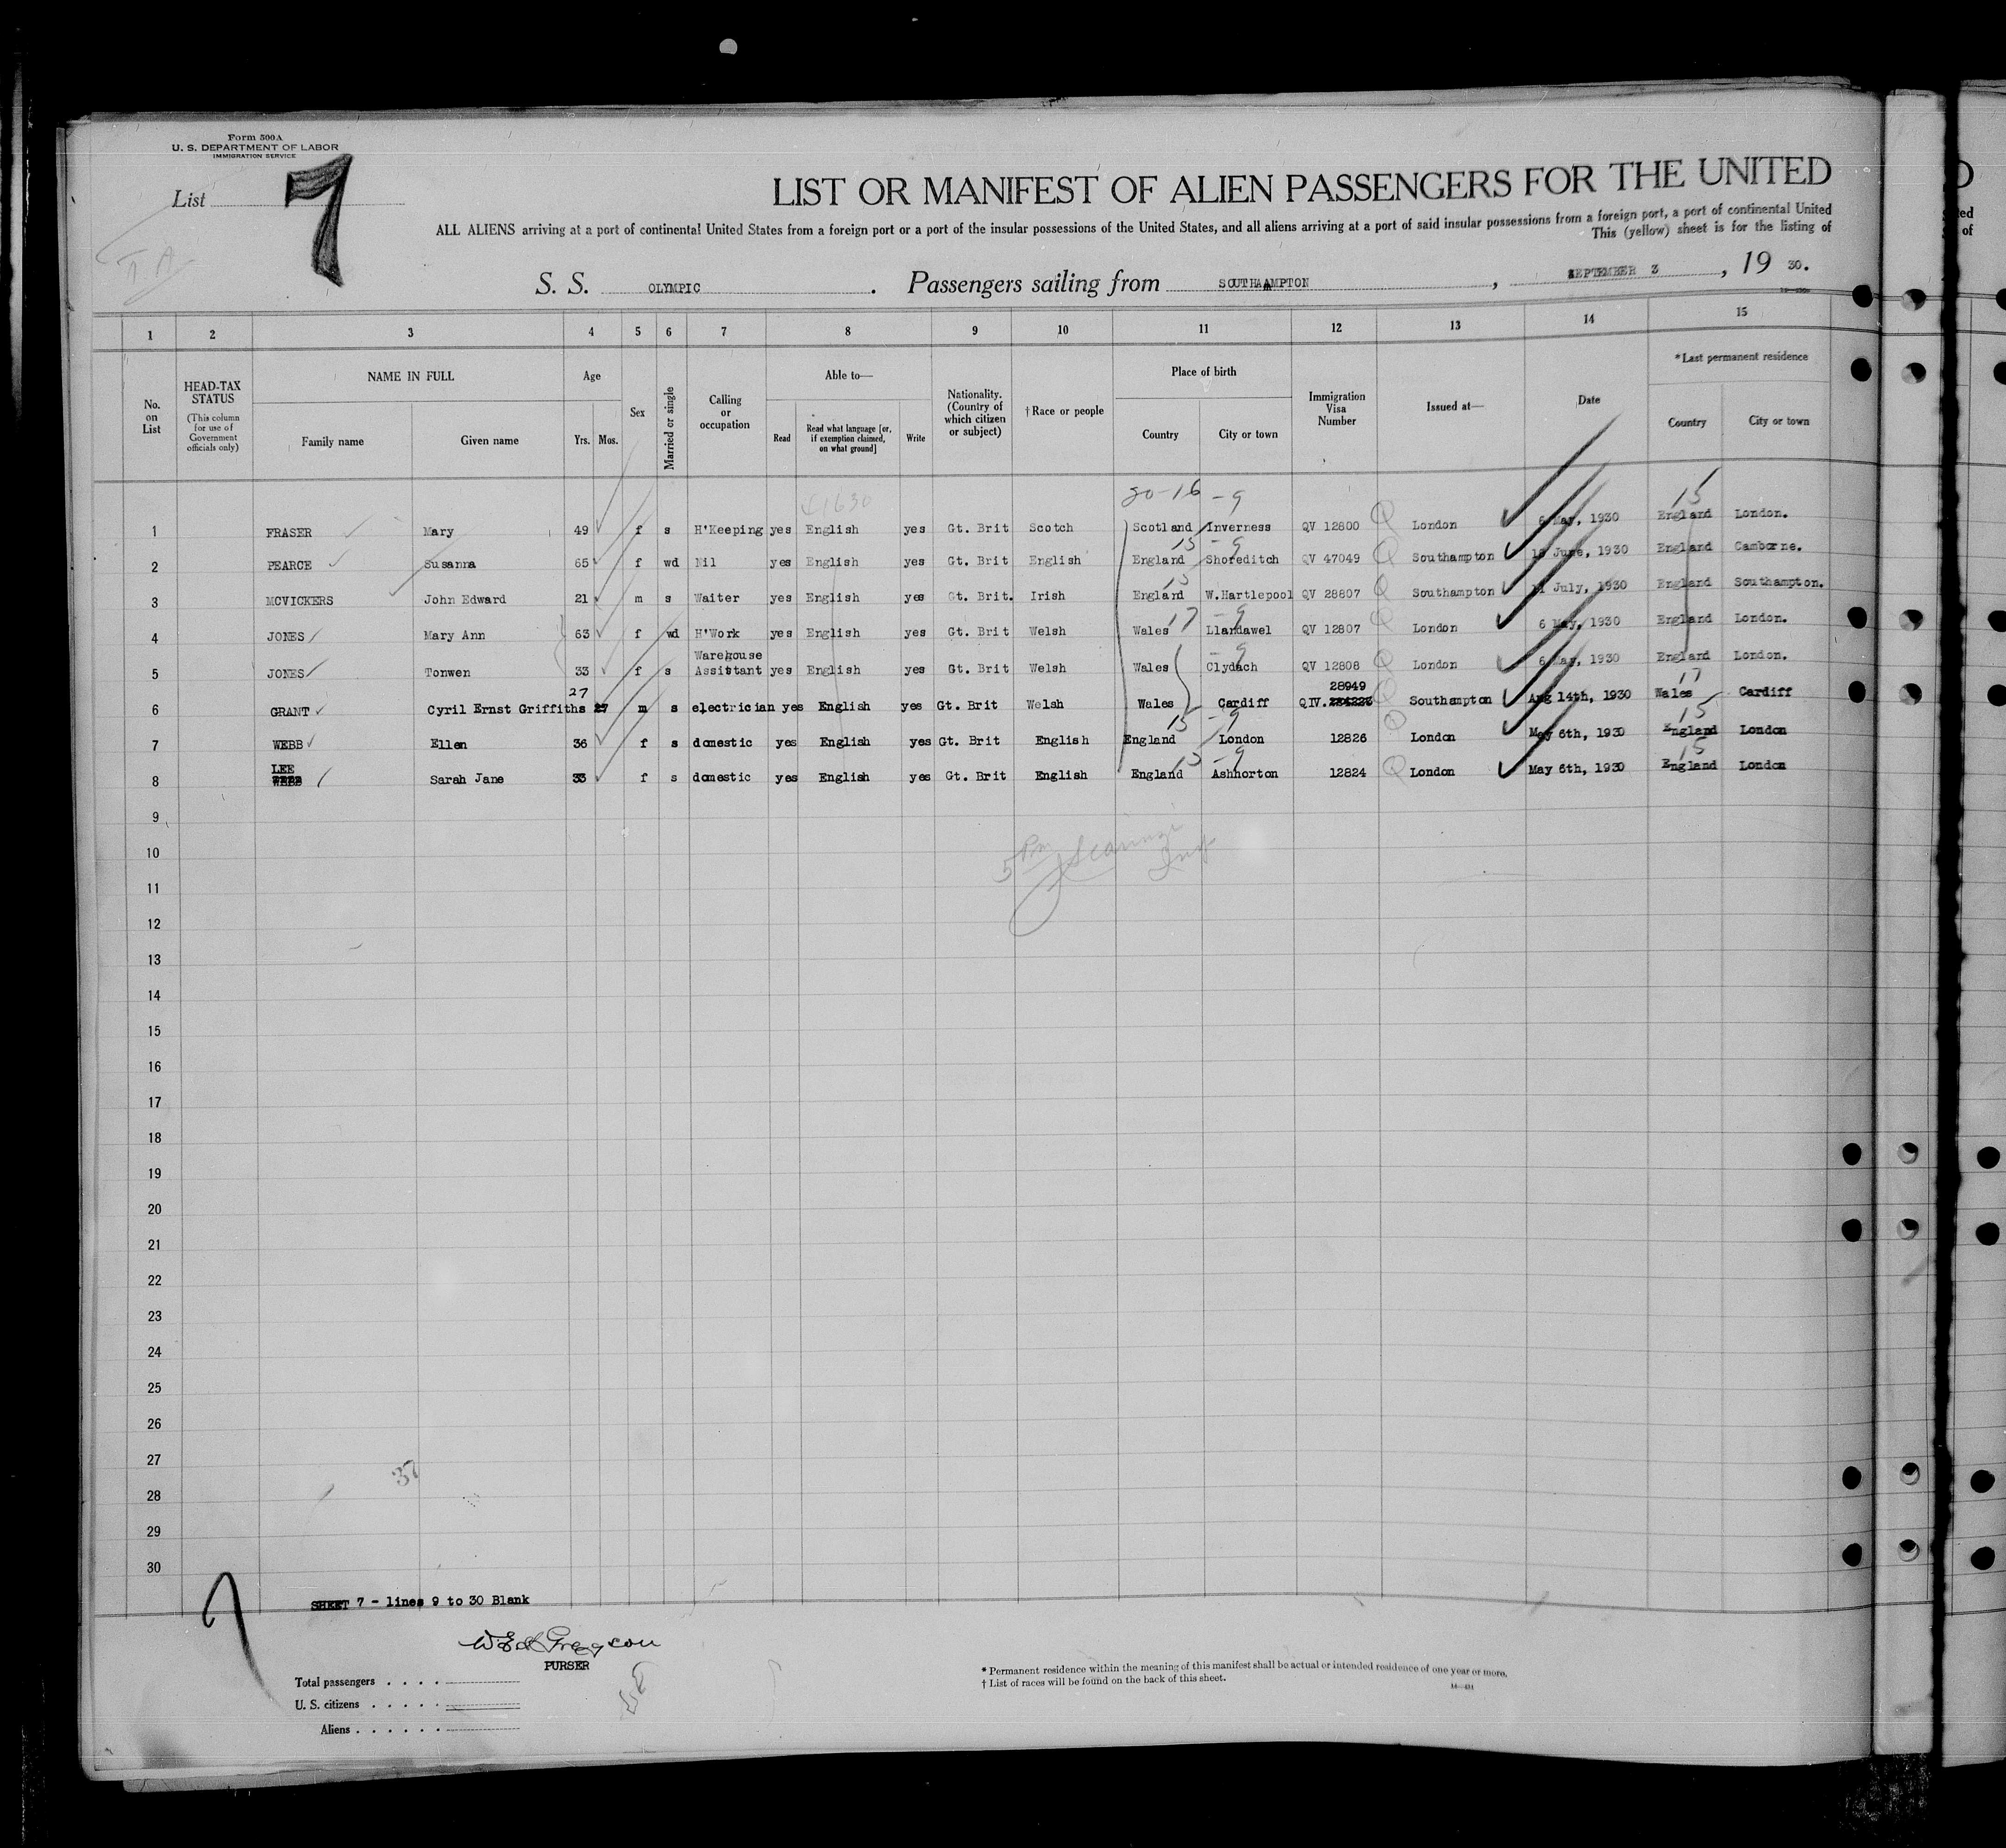 Form 500A
U. S. DEPARTMENT OF LABOR
IMMIGRATION SERVICE
List 7
LIST OR MANIFEST OF ALIEN PASSENGERS FOR THE UNITED
ALL ALIENS arriving at a port of continental United States from a foreign port or a port of the insular possessions of the United States, and all aliens arriving at a port of said insular possessions from a foreign port, a port of continental United
This (yellow) sheet is for the listing of
S. S. OLYMPIC. Passengers sailing from SOUTHAMPTON, SEPTEMBER 3, 19 30.
1 2 3 4 5 6 7 8 9 10 11 12 13 14 15
No. on List
HEAD-TAX STATUS
(This column for use of Government officials only)
NAME IN FULL
Family name Given name
Age
Yrs. Mos.
Sex
Married or single
Calling or occupation
Able to—
Read
Read what language [or, if exemption claimed, on what ground]
Write
Nationality. (Country of which citizen or subject)
† Race or people
Place of birth
Country City or town
Immigration Visa Number
Issued at—
Date
*Last permanent residence
Country City or town
20-16 -9 15
1 FRASER Mary 49 f s H'Keeping yes English yes Gt. Brit Scotch Scotland Inverness QV 12800 London 6 May, 1930 England London.
15 -9
2 PEARCE Susanna 65 f wd Nil yes English yes Gt. Brit English England Shoreditch QV 47049 Southampton June, 1930 England Camborne.
15
3 MCVICKERS John Edward 21 m s Waiter yes English yes Gt. Brit. Irish England W.Hartlepool QV 28807 Southampton July, 1930 England Southampton.
17 -9
4 JONES Mary Ann 63 f wd H'Work yes English yes Gt. Brit Welsh Wales Llandawel QV 12807 London 6 May, 1930 England London.
Warehouse -9
5 JONES Tonwen 33 f s Assistant yes English yes Gt. Brit Welsh Wales Clydach QV 12808 London 6 May, 1930 England London.
27 28949 17
6 GRANT Cyril Ernst Griffiths 27 m s electrician yes English yes Gt. Brit Welsh Wales Cardiff QIV. Southampton Aug 14th, 1930 Wales Cardiff
15 -9 15
7 WEBB Ellen 36 f s domestic yes English yes Gt. Brit English England London 12826 London May 6th, 1930 England London
LEE 15 -9 15
8 WEBB Sarah Jane 33 f s domestic yes English yes Gt. Brit English England Ashhorton 12824 London May 6th, 1930 England London
9
10
11
12
13
14
15
16
17
18
19
20
21
22
23
24
25
26
27
37
28
29
30
SHEET 7 - lines 9 to 30 Blank
PURSER
Total passengers
U. S. citizens
Aliens
* Permanent residence within the meaning of this manifest shall be actual or intended residence of one year or more.
† List of races will be found on the back of this sheet.